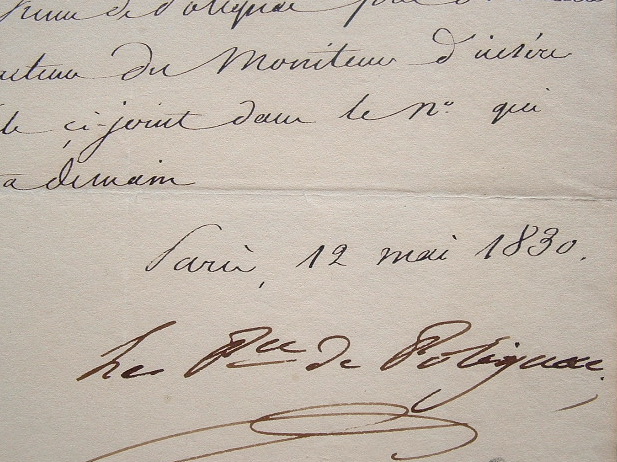 de Polignac
du Moniteur d'insére
ci-joint dans le nº qui
demain
Paris, 12 mai 1830.
Le Pce de Polignac.